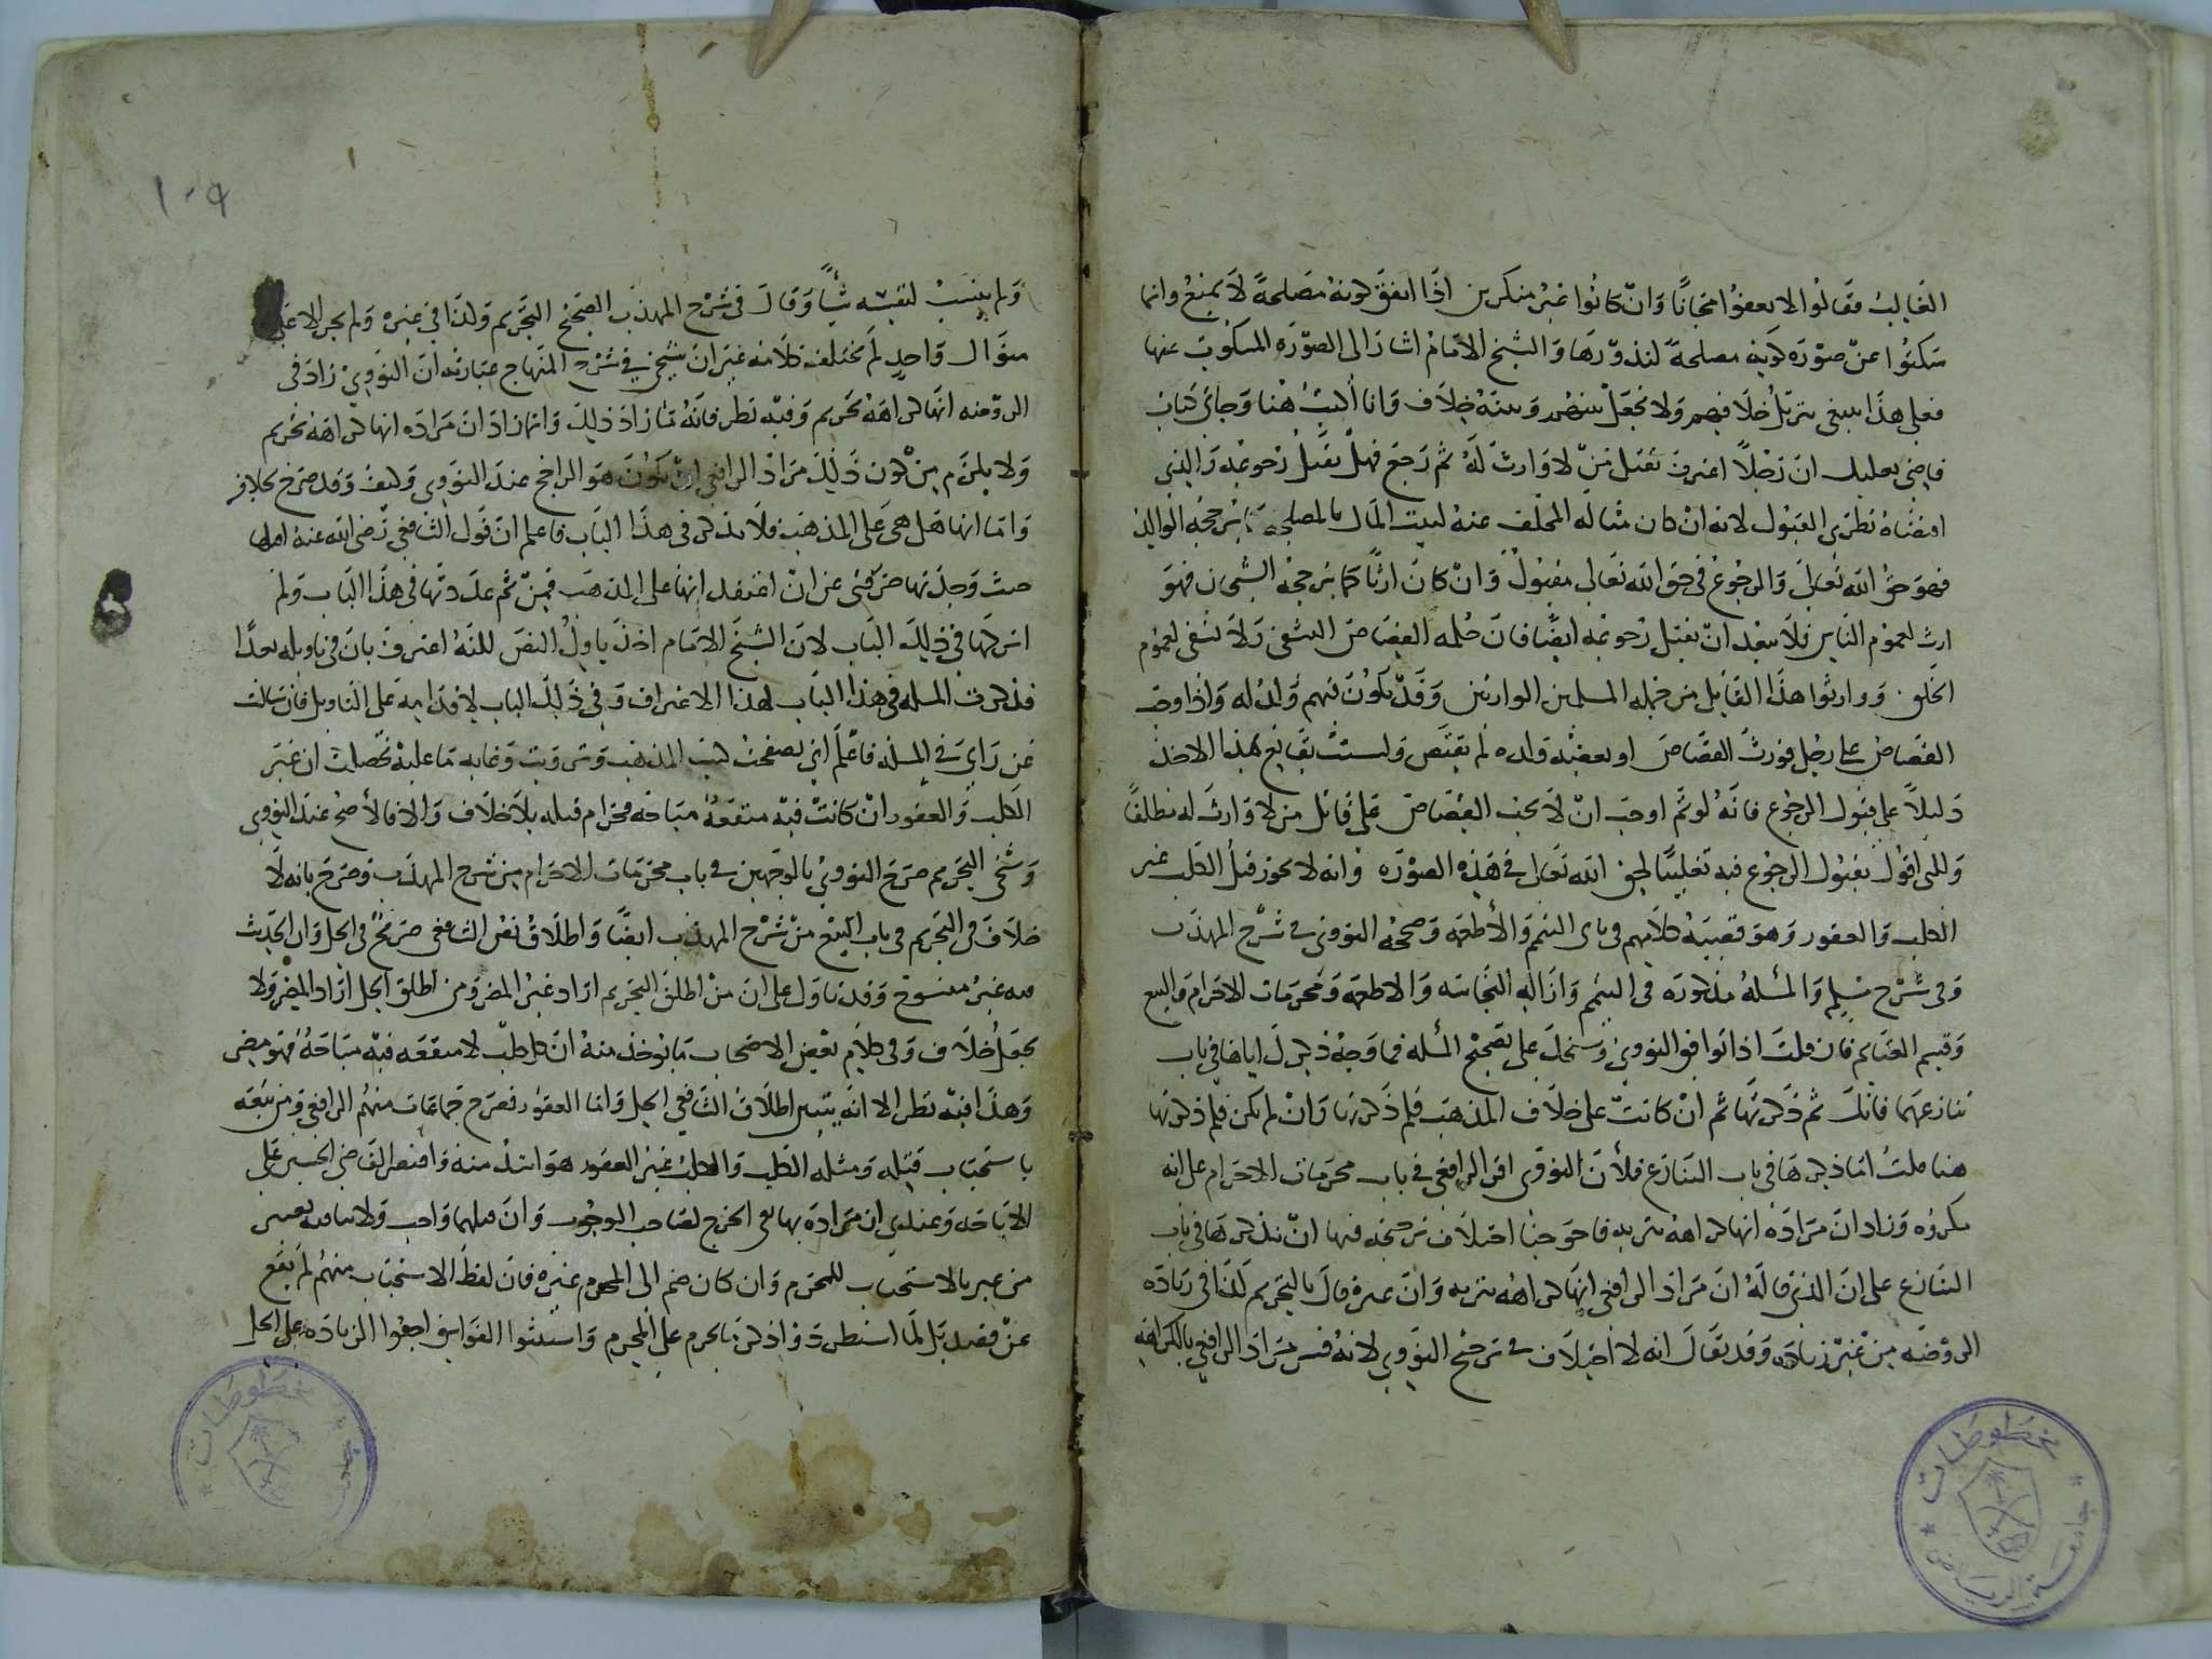 الغالب فقالوا لا يعفوا مجانا وان كانوا غير منكرين اذا اتفق كونه مصلحة لا يمنع وانما
سكتوا عن صورة كونه مصلحة لندورها والشيخ الامام اشار الى الصورة المسكوت عنها
فعلى هذا ينبغي تنزيل خلافهم ولا تجعل بينهم وبينه خلاف وانا كتبت هنا وجاني كتاب
قاضي بعلبك ان رجلا اعترف بقتل من لا وارث له ثم رجع فهل يقبل رجوعه والذي
اقتضاه نظري القبول لانه ان كان مثاله المخلف عنه لبيت المال بالمصلحة كما يرجحه الوالد
فهو حق الله تعالى والرجوع في حق الله تعالى مقبول وان كان ارثا كما يرجحه الشيخان فهو
ارث لعموم الناس فلا يبعد ان يقبل رجوعه ايضا فان حكمه القصاص التشفي ولا تشفي لعموم
الخلق ووارثوا هذا القاتل من جملة المسلمين الوارثين وقد يكون فيهم ولد له واذا وجب
القصاص على رجل فورث القصاص او بعضه ولده لم يقتص ولست بقانع بهذا الاخذ
دليلا على قبول الرجوع فانه لو تم اوجب ان لا يجب القصاص على قاتل من لا وارث له مطلقا
ولكني اقول بقبول الرجوع فيه تغليبا لحق الله تعالى في هذه الصورة وانه لا يجوز قتل الكلب غير
الكلب والعقور وهو قضية كلامهم في بابي التيمم والأطعمة وصححه النووي في شرح المهذب
وفي شرح مسلم والمسلة مذكورة في التيمم وازالة النجاسة والاطعمة ومحرمات الاحرام والبيع
وقسم الغنائم فان قلت اذا توافق النووي وشيخك على تصحيح المسلة فما وجه ذكرك اياها في باب
تنازعهما فانك ثم ذكرتها ثم ان كانت على خلاف المذهب فلم ذكرتها وان لم تكن فلم ذكرتها
هنا قلت انما ذكرها في باب التنازع فلأن النووي اقر الرافعي في باب محرمات الاحرام على انه
مكروه وزاد ان مراده انها كراهة تنزيه فاحوجنا اختلاف ترجيحه فيها ان نذكرها في باب
التنازع على ان الذي قاله ان مراد الرافعي انها كراهة تنزيه وان غيره قال بالتحريم كذا في زيادة
الروضة من غير زيادة وقد يقال انه لا اختلاف في ترجيح النووي لانه فسر مراد الرافعي بالكراهة
١٠٩
ولم ينسب لنفسه شيأ وقال في شرح المهذب الصحيح التحريم وكذا في غيره ولم يجر الا على
منوال واحد لم يختلف كلامه غير ان شيخي في شرح المنهاج عبارته ان النووي زاد في
الروضة انها كراهة تحريم وفيه نظر فانه ما زاد ذلك وانما زاد ان مراده انها كراهة تحريم
ولا يلزم من كون ذلك مراد الرافعي ان يكون هو الراجح عند النووي وكيف وقد صرح بخلافه
واما انها هل هي على المذهب فلا نذكر في هذا الباب فاعلم ان قول الشافعي رضي الله عنه
حيث وجدتها صرفني عن ان اعتقد انها على المذهب فمن ثم عددتها في هذا الباب ولم
اتركها في ذلك الباب لان الشيخ الامام اخذ ياول النص لكنه اعترف بان في تاويله بعدا
فذكرت المسلة في هذا الباب لهذا الاعتراف وفي ذلك الباب لاقدامه على التاويل فان سالت
عن رايي في المسلة فاعلم اني تصفحت كتب المذهب وترويت وغاية ما عليه تحصلت ان غير
الكلب والعقور ان كانت فيه منفعة مباحة فحرام قتله بلا خلاف والا فالأصح عند النووي
وشيخي التحريم صرح النووي بالوجهين في باب محرمات الاحرام من شرح المهذب وصرح بانه لا
خلاف في التحريم في باب البيع من شرح المهذب ايضا واطلاق نص الشافعي صريح في الحل وان الحديث
فيه غير منسوخ وقد نتاول على ان من اطلق التحريم اراد غير المضر ومن اطلق الحل اراد المضر ولا
يجعل خلاف وفي كلام بعض الاصحاب ما يوخذ منه ان كل كلب لا منفعة فيه مباحة فهو مضر
وهذا فيه نظر الا انه يتيسر اطلاق الشافعي الحل واما العقور فصرح جماعات منهم الرافعي ومن تبعه
باستحباب قتله ومثله الكلب والكلب غير العقور هو اشد منه واقتصر القاضي الحسين على
الاباحة وعندي ان مراده بها نفي الحرج لصاحب الوجوب وان قتلهما واجب ولا ينافيه تعبير
من عبر بالاستحباب للمحرم وان كان ضم الى المحرم غيره فان لفظ الاستحباب منهم لم يقع
عن قصد بل لما استطردوا ذكر ما يحرم على المحرم واستثنوا الفواسق اجمعوا الزيادة على الحل
مخطوطات
جامعة الرياض
مخطوطات